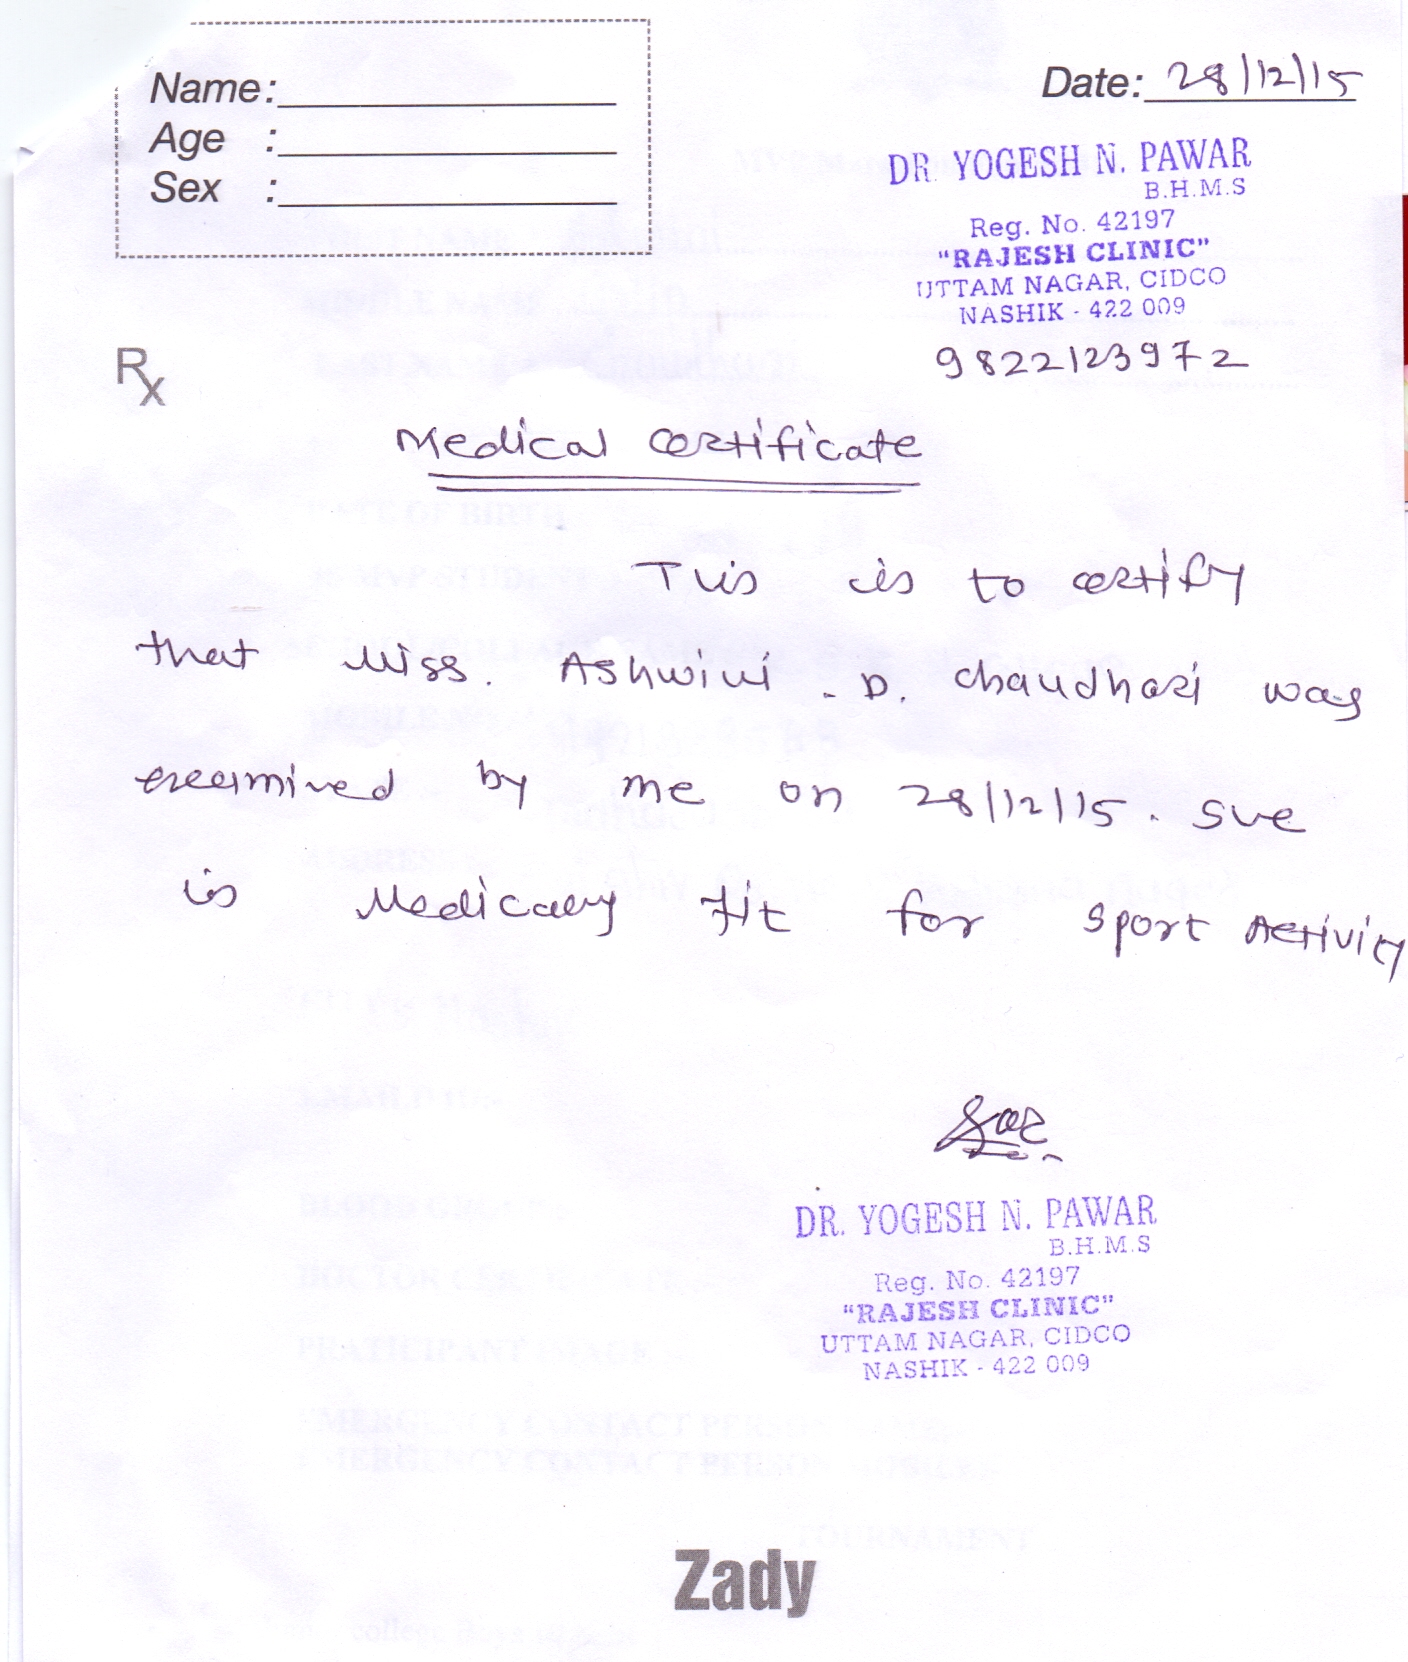 Name:
Date: 28/12/15
Age :
Sex :
DR. YOGESH N. PAWAR
B.H.M.S
Reg. No. 42197
"RAJESH CLINIC"
UTTAM NAGAR, CIDCO
NASHIK - 422 009
9822123972
Rx
Medical certificate
This is to certify
that Miss. Ashwini . D. Chaudhari was
examined by me on 28/12/15. She
is Medically fit for sport Activity
DR. YOGESH N. PAWAR
B.H.M.S
Reg. No. 42197
"RAJESH CLINIC"
UTTAM NAGAR, CIDCO
NASHIK - 422 009
Zady